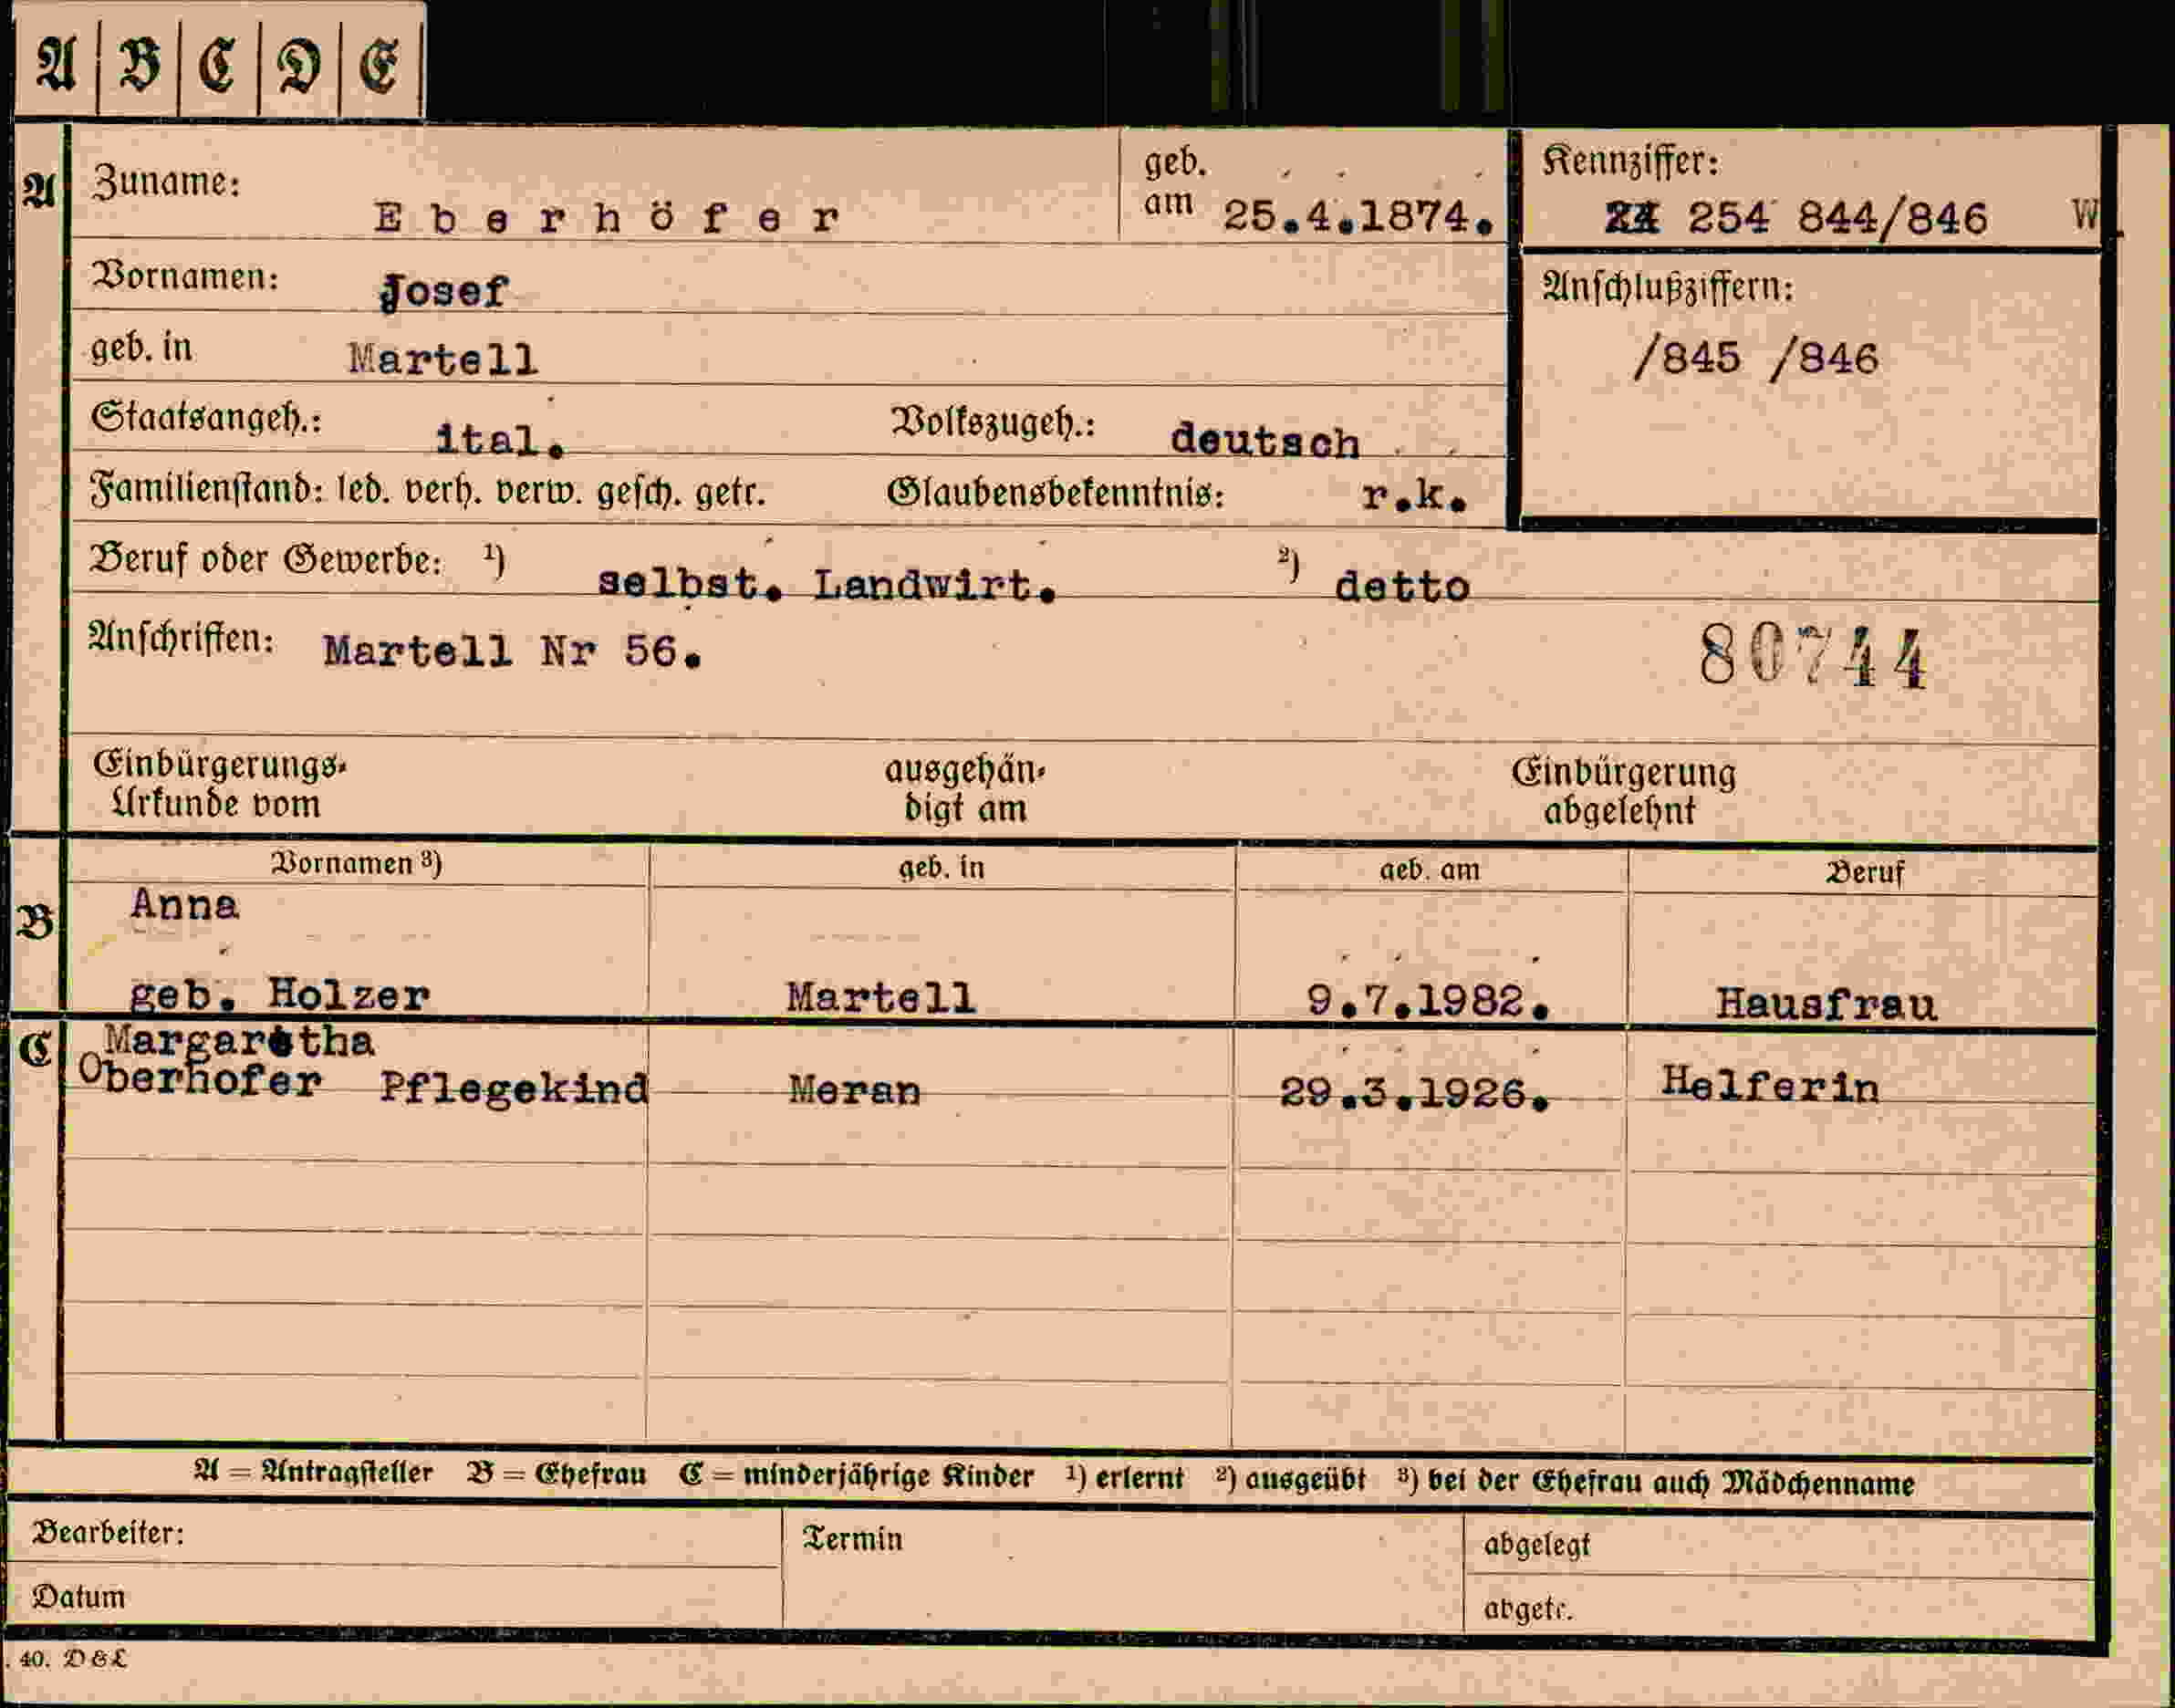 A B C D E
A Zuname: Eberhöfer geb. am 25.4.1874. Kennziffer: 254 844/846 W
Vornamen: Josef Anschlußziffern:
geb. in Martell /845 /846
Staatsangeh.: ital. Volkszugeh.: deutsch
Familienstand: led. verh. verw. gesch. getr. Glaubensbekenntnis: r.k.
Beruf oder Gewerbe: ¹) selbst. Landwirt. ²) detto
Anschriften: Martell Nr 56. 80744
Einbürgerungs- ausgehän- Einbürgerung
Urkunde vom digt am abgelehnt
Vornamen ³) geb. in geb. am Beruf
B Anna
geb. Holzer Martell 9.7.1982. Hausfrau
C Margaretha
Oberhofer Pflegekind Meran 29.3.1926. Helferin
A = Antragsteller B = Ehefrau C = minderjährige Kinder ¹) erlernt ²) ausgeübt ³) bei der Ehefrau auch Mädchenname
Bearbeiter: Termin abgelegt
Datum abgetr.
. 40. D & L